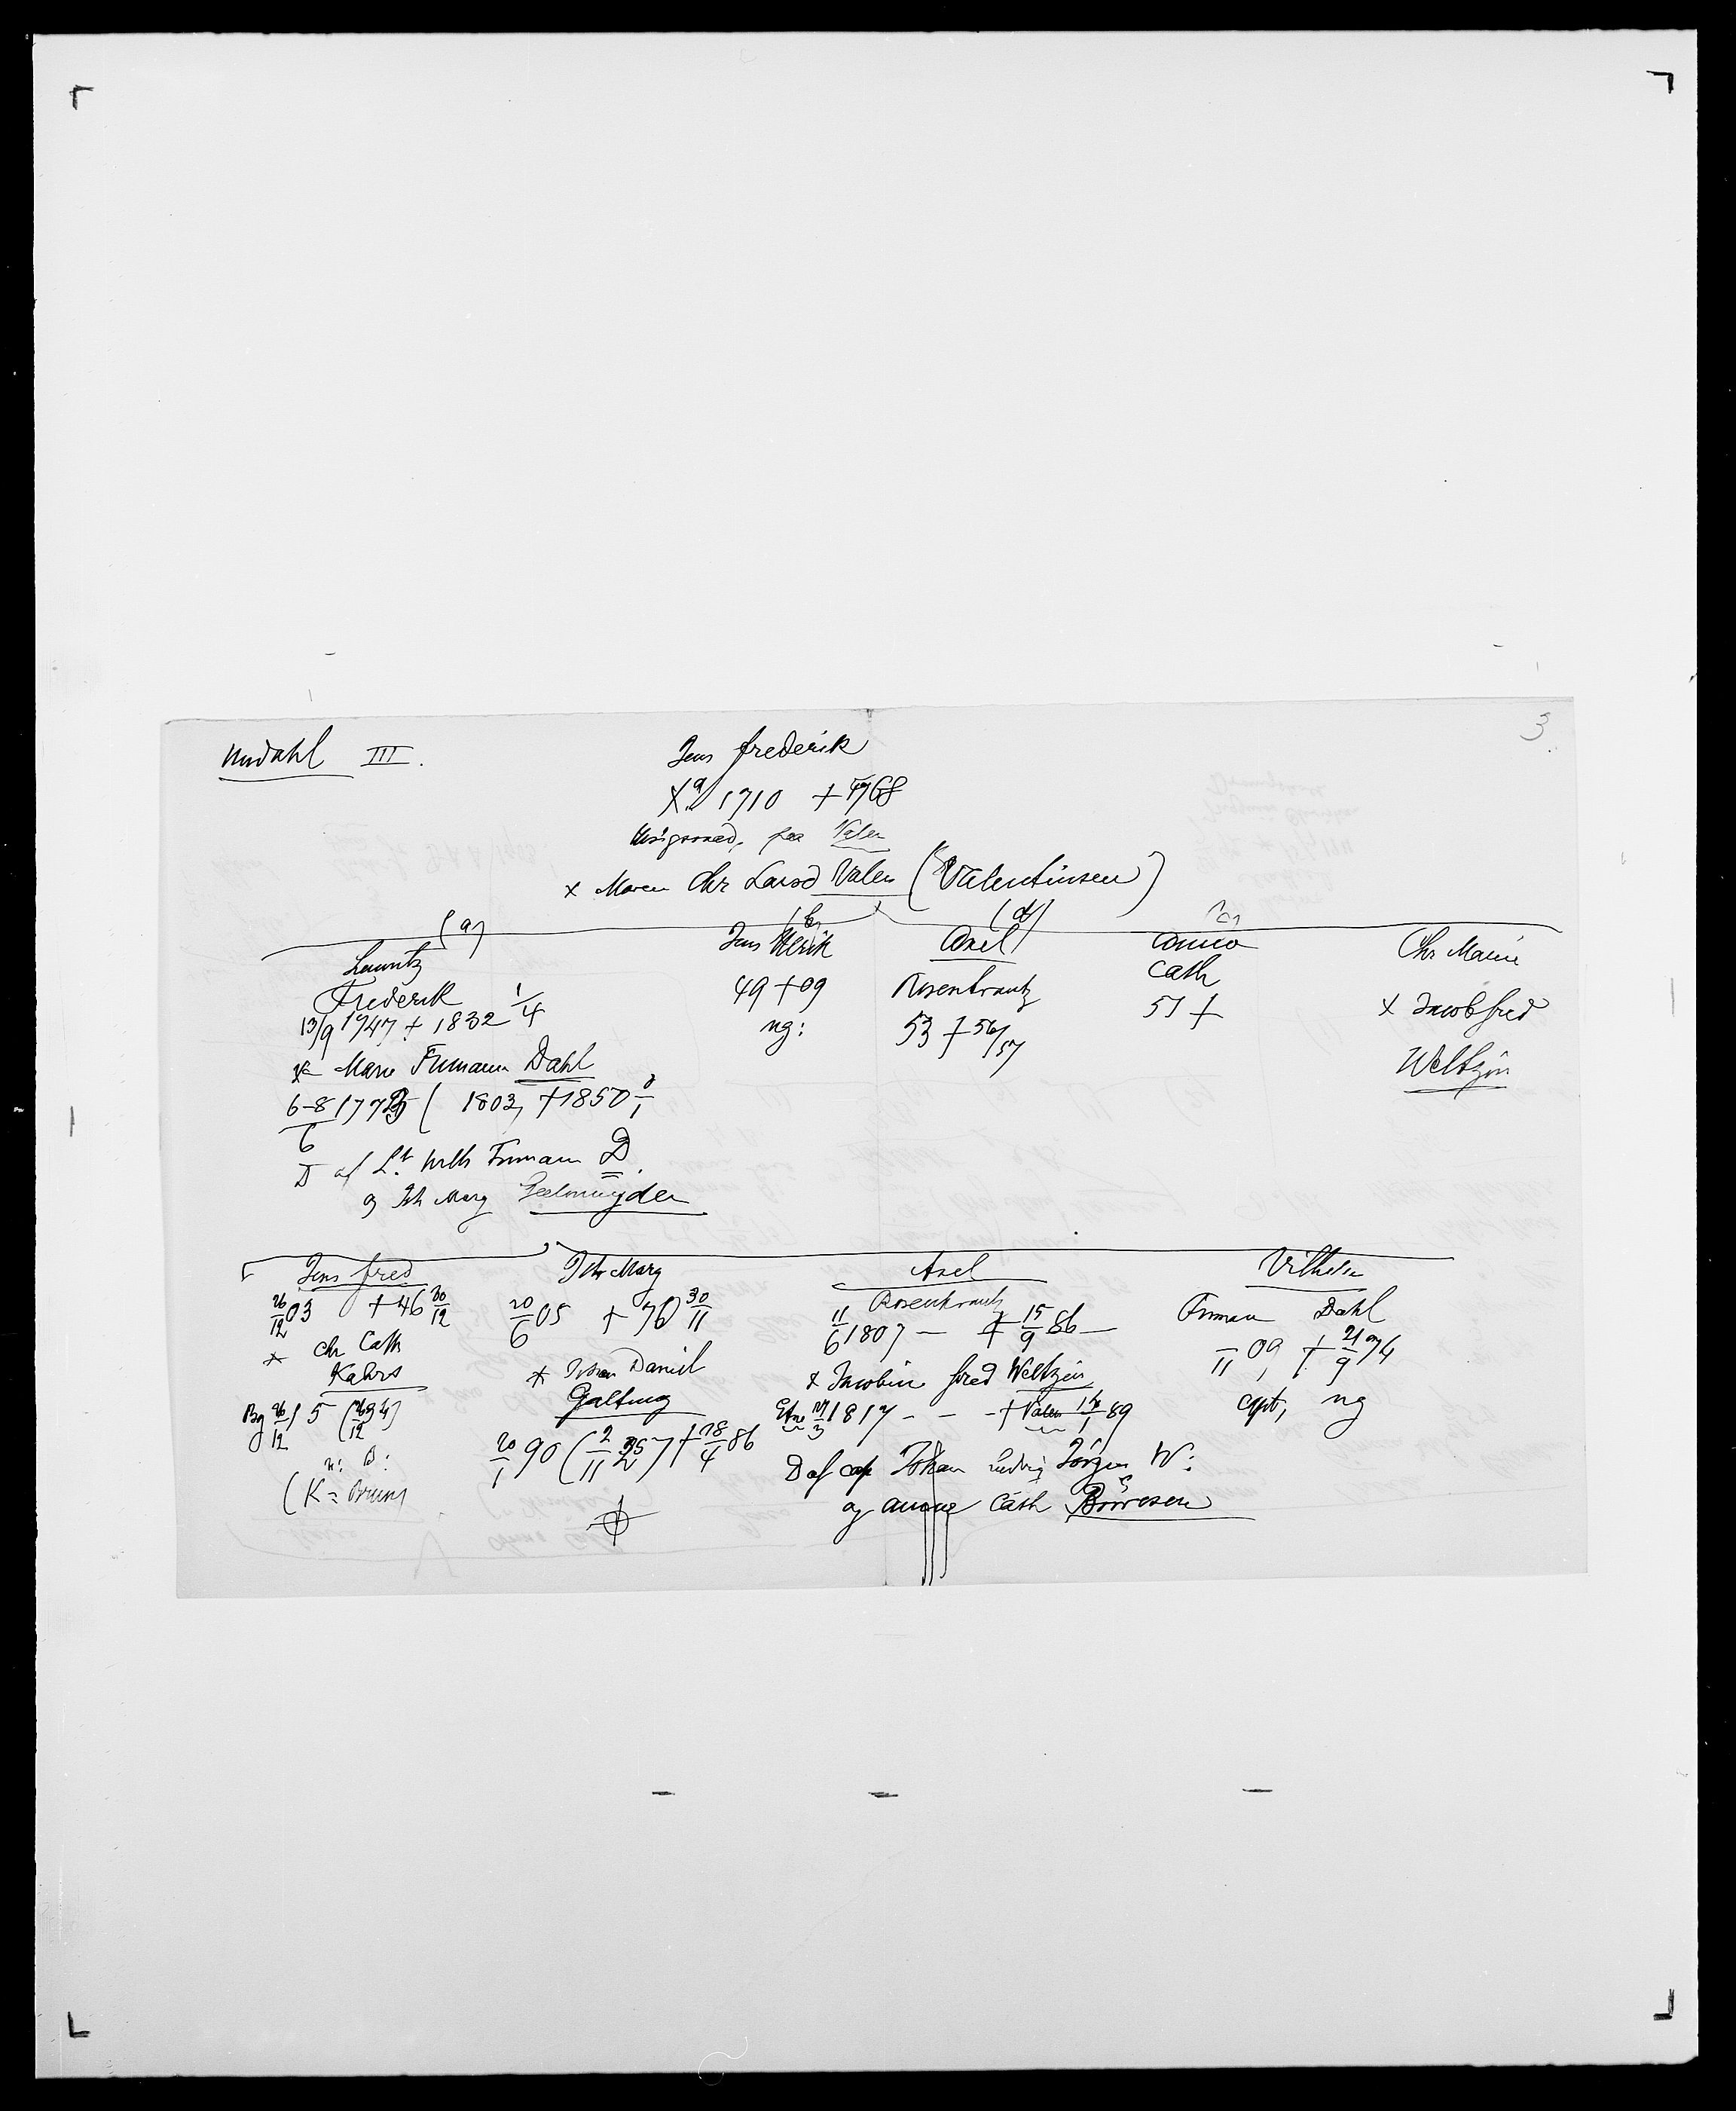 Undahl III.
3
Jens frederik
1710 + 68
paa Valen
x Maren Chr Larsd Valen (Valentinsen)
(a) (b) (d) (c)
Lauritz
Frederik
13/9 1747 + 1832 1/4
x Maren Frimann Dahl
6-8/6 177 ( 1803, +1850
D af Lt Frimann D.
og Marg Geelmuyden
Jens Ulrik
49 + 09
ng:
Axel
Rosenkrantz
53 + 56/57
Anna
Cath
51 +
Chr Marie
x Jacob fred
Weltzin
Jens fred
26/12 03 + 46 30/12
x Chr Cath
Kahrs
Bg 26/12 15
(K = Bruns)
Marg
20/6 05 + 76 30/11
x Johan Daniel
Galtung
20/1 90 (2/11 + 18/4 86
Axel
Rosenkrantz
11/6 1807 — + 15/9 86 —
x Jacobine fred Weltzin
Etne 1817 - - - + Valen 89
D af cap Johan Ludvig Jörgen W:
og Anne Cath Börresen
Vilhelm
Friman Dahl
/11 09, + 21/9 74
cpt, ng